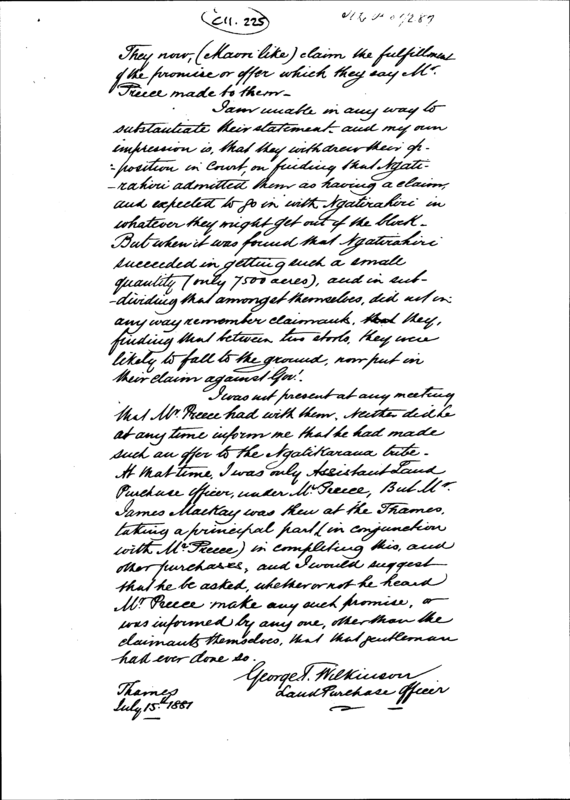 C11. 225
They now, (Maori like) claim the fulfillment
of the promise or offer which they say Mr.
Preece made to them –
I am unable in any way to
substantiate their statement – and my own
impression is, that they withdrew their op-
-position in Court, on finding that Ngati-
-rahiri admitted them as having a claim,
and expected to go in with Ngatirahiri in
whatever they might get out of the block –
But when it was found that Ngatirahiri
succeeded in getting such a small
quantity (only 7500 acres), and in sub-
-dividing that amongst themselves, did not in
any way remember claimants, they,
finding that between two stools, they were
likely to fall to the ground, now put in
their claim against Govt.
I was not present at any meeting
that Mr. Preece had with them. Neither did he
at any time inform me that he had made
such an offer to the Ngatikaraua tribe –
At that time, I was only Assistant Land
Purchase Officer, under Mr Preece, But Mr.
James Mackay was then at the Thames,
taking a principal part (in conjunction
with Mr. Preece) in completing this, and
other purchases, and I would suggest
that he be asked, whether or not he heard
Mr Preece make any such promise, or
was informed by any one, other than the
claimants themselves, that that gentleman
had ever done so.
George T. Wilkinson
Land Purchase Officer
Thames
July 15th 1881